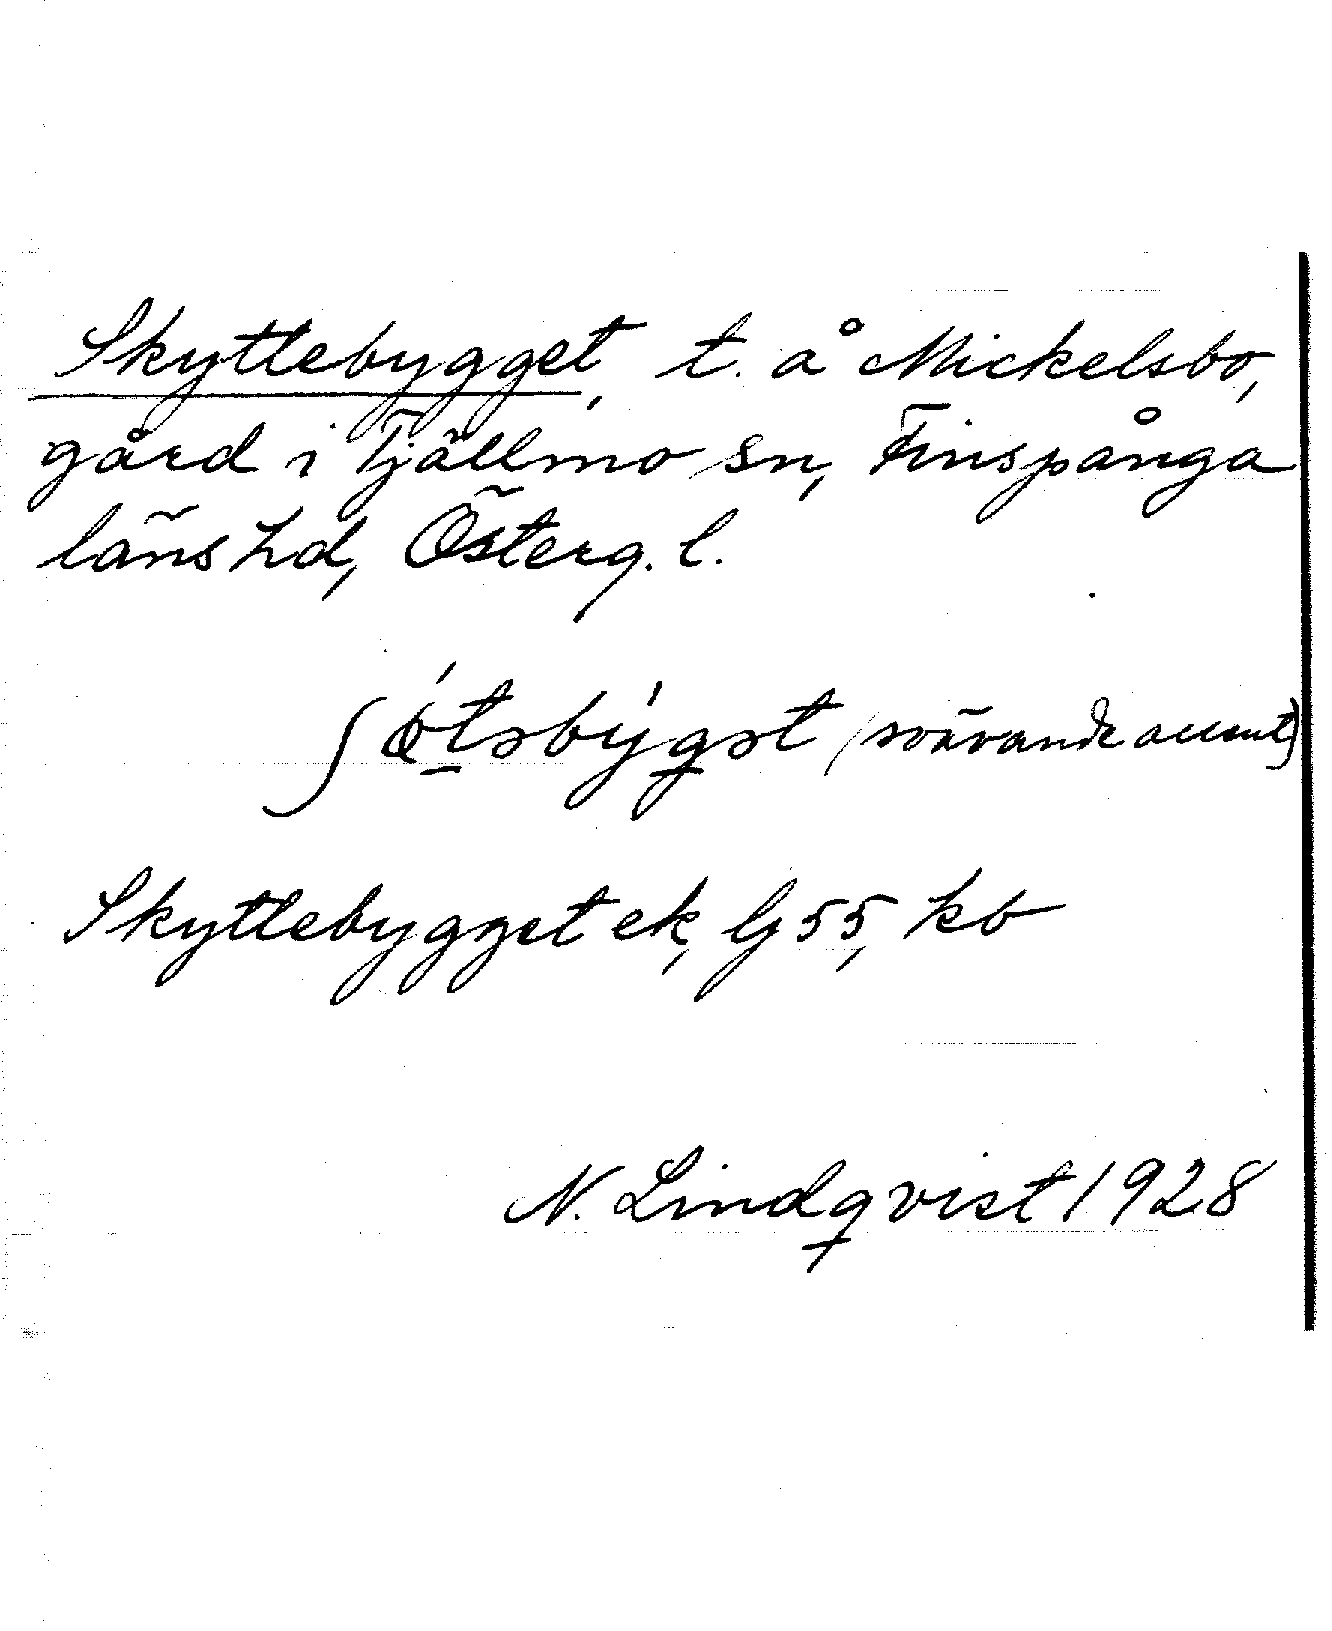 Skyttebygget, t. å Mickelsbo,
gård i Tjällmo sn, Finspånga
läns hd, Österg. l.
(svävande accent)
Skyttebygget ek, Gj 55, kb
N. Lindqvist 1928